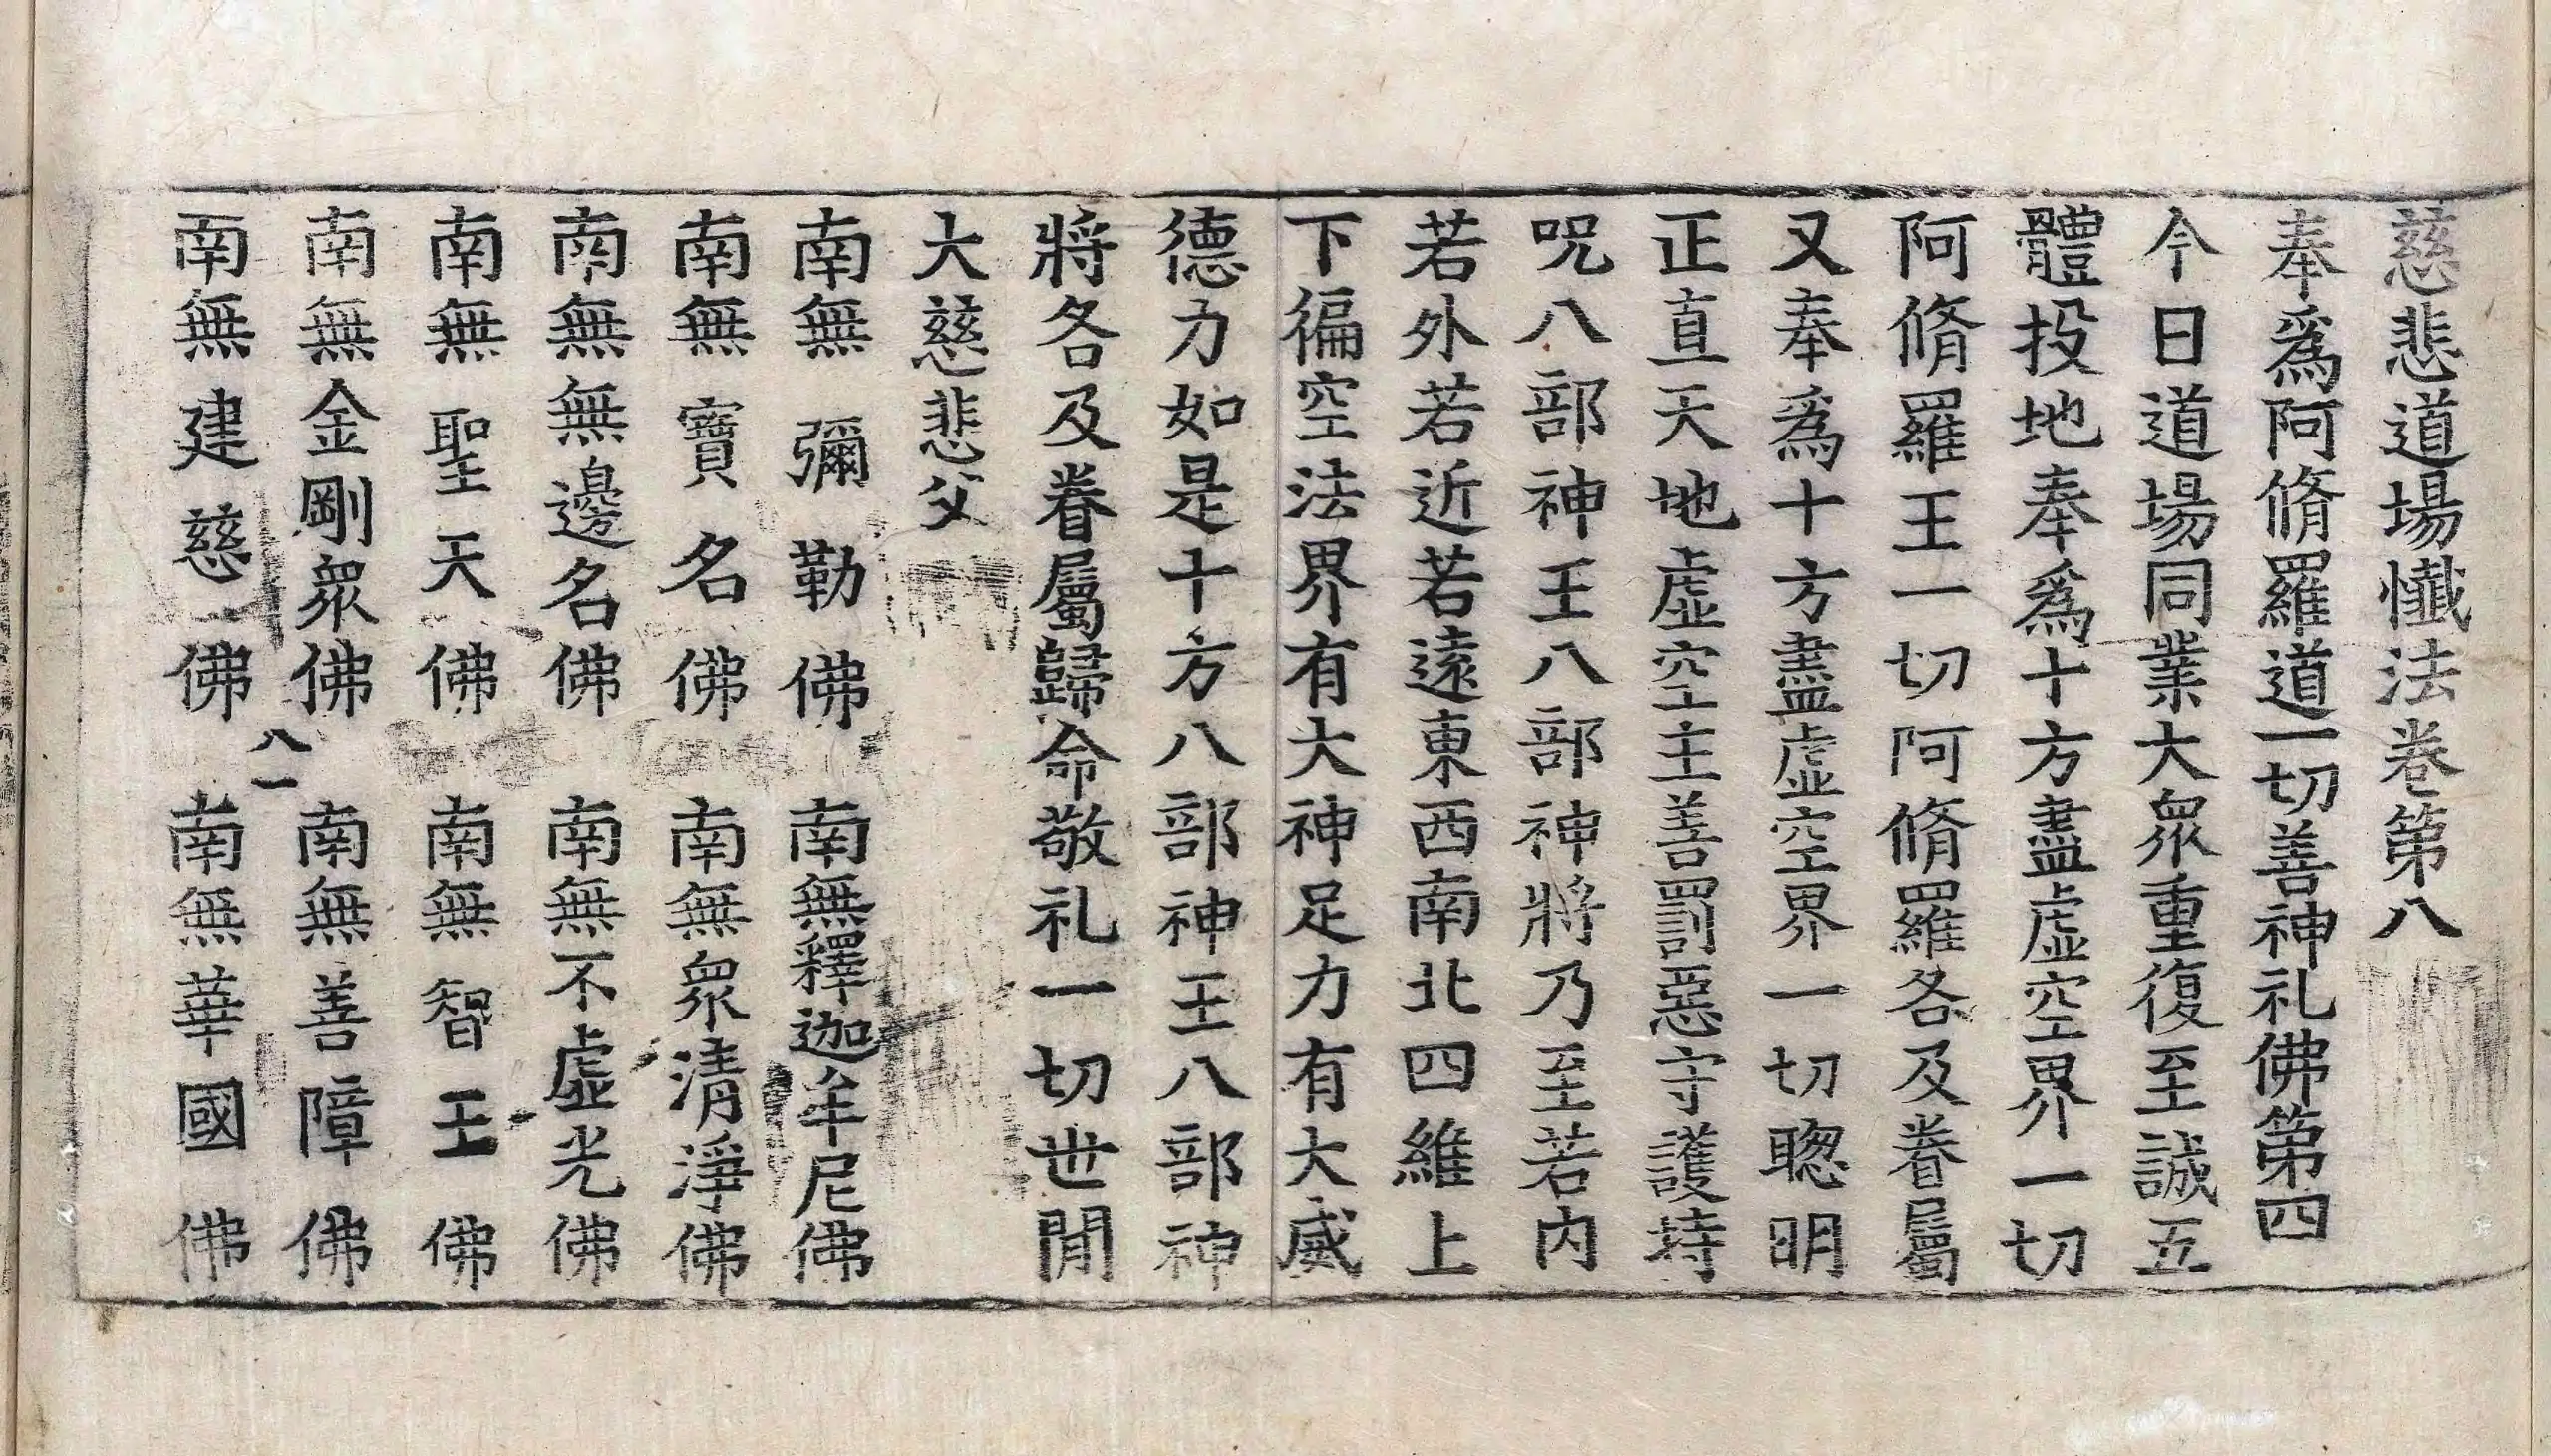 慈悲道場懺法卷第八
奉爲阿脩羅道一切善神礼佛第四
今日道場同業大衆重復至誠五
體投地奉爲十方盡虛空界一切
阿脩羅王一切阿脩羅各及眷屬
又奉爲十方盡虛空界一切聦明
正直天地虛空主善罰惡守護持
呪八部神王八部神將乃至若内
若外若近若遠東西南北四維上
下徧空法界有大神足力有大威
德力如是十方八部神王八部神
將各及眷屬歸命敬礼一切世間
大慈悲父
南無彌勒佛 南無釋迦牟尼佛
南無寶名佛 南無衆清淨佛
南無無邊名佛 南無不虛光佛
南無聖天佛 南無智王佛
南無金剛衆佛 南無善障佛
八一
南無建慈佛 南無華國佛